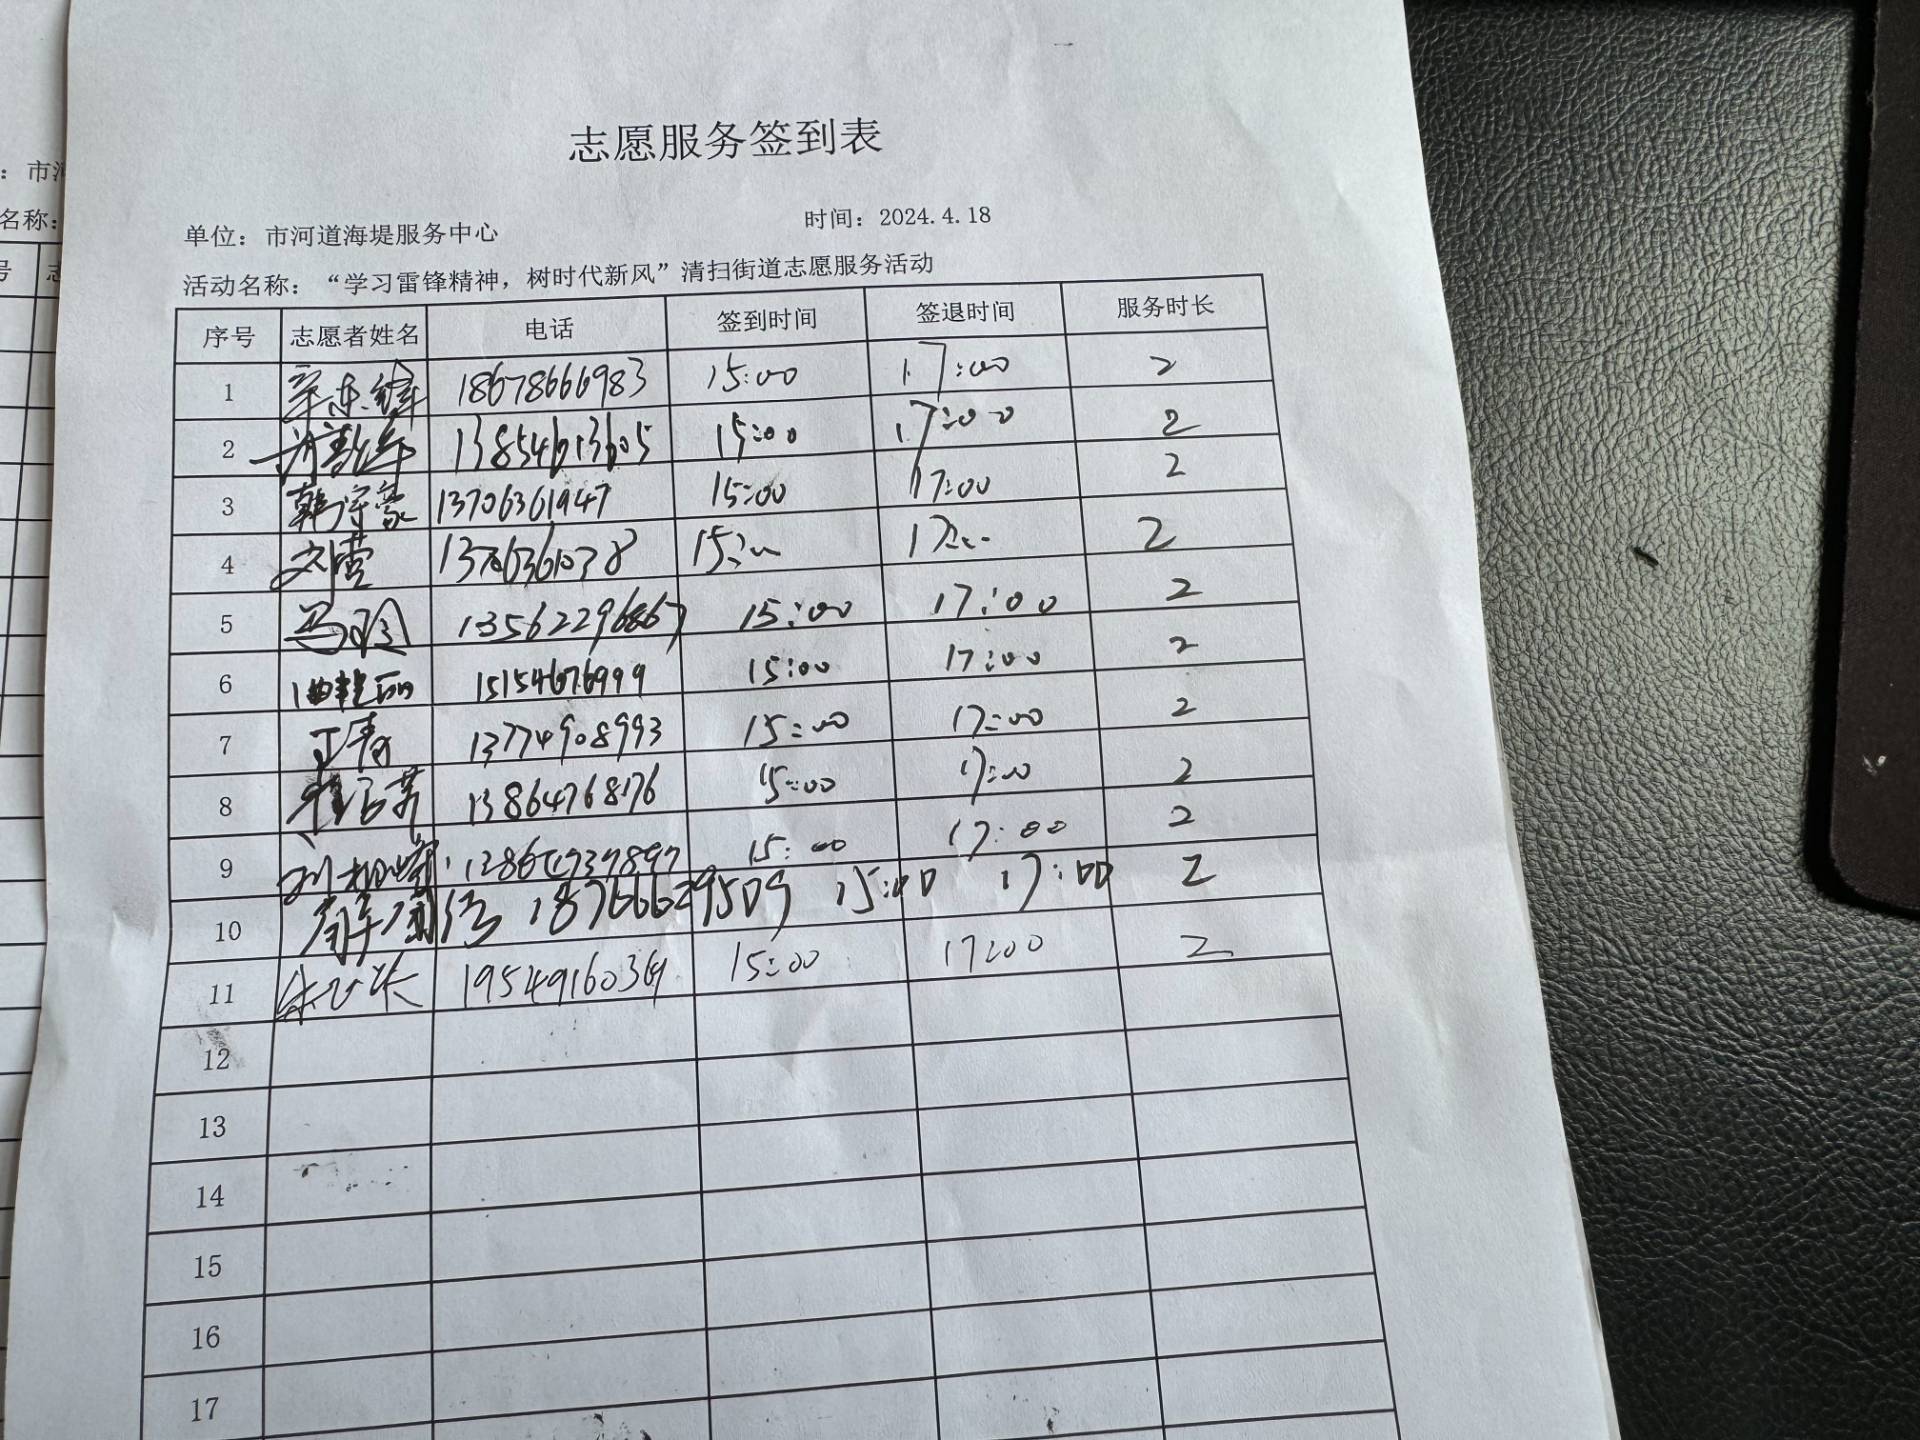 志愿服务签到表
单位：市河道海堤服务中心 时间：2024.4.18
活动名称：“学习雷锋精神，树时代新风”清扫街道志愿服务活动
序号 志愿者姓名 电话 签到时间 签退时间 服务时长
1 18678666983 15:00 17:00 2
2 13854613605 15:00 17:00 2
3 13706361947 15:00 17:00 2
4 刘莹 15:00 17:00 2
5 马玲 15:00 17:00 2
6 15154676999 15:00 17:00 2
7 王青 13774908993 15:00 17:00 2
8 13864768176 15:00 17:00 2
9 15:00 17:00 2
10 18766629509 15:00 17:00 2
11 15:00 17:00 2
12
13
14
15
16
17
：市河
名称：
号 志